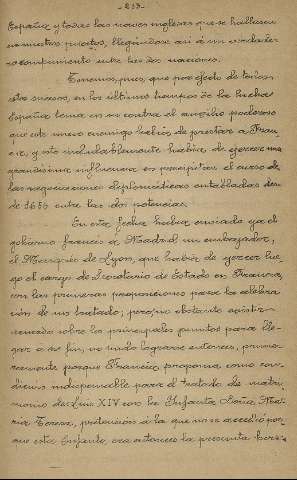 - 255 -
España y todas las naves inglesas que se hallasen
en nuestros puertos, llegándose así á un verdadero
rompimiento entre las dos naciones.
Tenemos, pues, que por efecto de todos
estos sucesos, en los últimos tiempos de la lucha
España tenía en su contra el auxilio poderoso
que este nuevo enemigo había de prestar a Fran-
cia, y esto indudablemente había de ejercer una
grandísima influencia en precipitar el curso de
las negociaciones diplomáticas entabladas des-
de 1656 entre las dos potencias.
En esta fecha había enviado ya el
gobierno francés a Madrid un embajador,
el Marqués de Lyon, que había de ejercer lue-
go el cargo de Secretario de Estado en Francia,
con las primeras proposiciones para la celebra-
ción de un tratado; pero, no obstante
sobre los principales puntos para lle-
gar a su fin, no pudo lograrse entonces, prime-
ramente porque Francia proponía como con-
dición indispensable para el tratado de matri-
monio de Luis XIV con la Infanta Doña Ma-
ría Teresa, pretensión a la que no se accedió por-
que esta Infanta era entonces la presunta here-